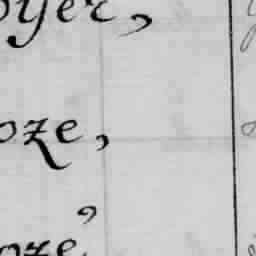 oyer,
oze,
oze,